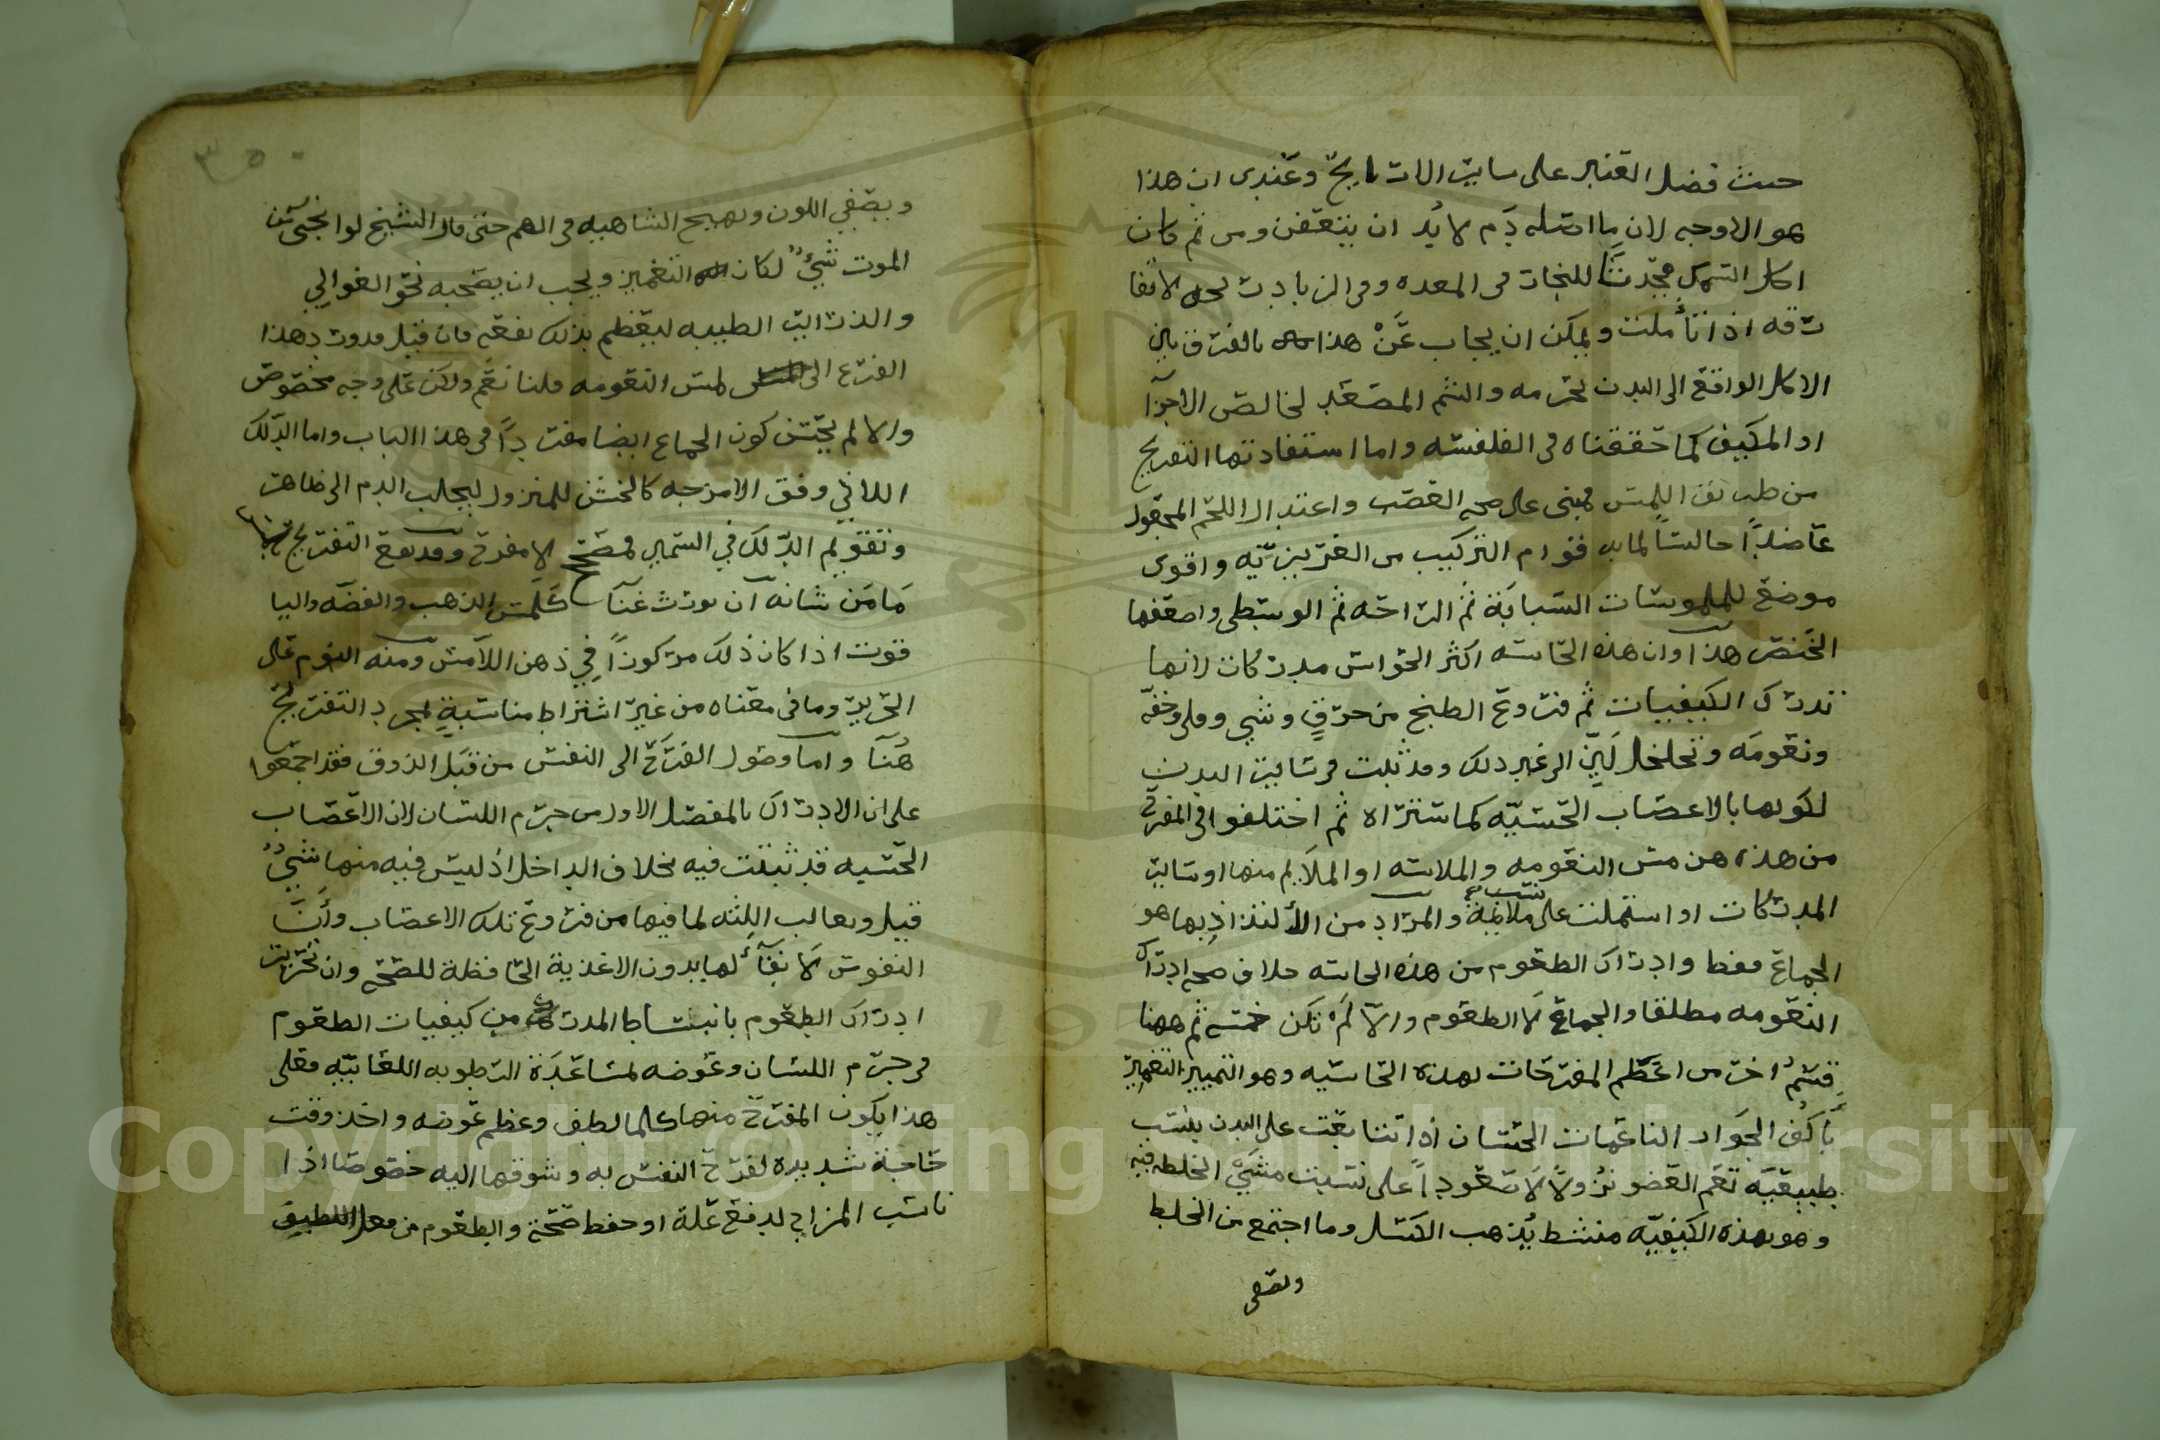 حيث فضل العنبر على ساير الاراييح وعندى ان هذا
هو الاوجه لان ما اصله دم لا بُد ان يتعفن ومن ثم كان
اكل السمك مجدثا للبخار فى المعده وفى الزبادت لحله لانفا
رقه اذا تأملت ويمكن ان يجاب عَنْ هذا بالفرق بين
الاكل الواقع الى البدن بجرمه والشم المصعد لخالص الاجزآ
او المكيف كما حققناه فى الفلفسه واما استفادتها التفريح
من طريق اللمس فمبنى على صحه العصب واعتدال اللحم المجعول
عاضداً حابساً لما به قوام التركيب من الغريزيّه واقوى
موضع للملموسات السبابة ثم الراحه ثم الوسطى واضعفها
الخنصر هذا وان هذه الحاسه اكثر الحواس مدركات لانها
تدرك الكيفيات ثم فروع الطبخ من حرق وشي وقلى وخفه
ونعومه وتخلخل لَيّن الى غير ذلك وقد ثبتت فى ساير البدن
لكونها بالاعصاب الحسيّه كما ستراه ثم اختلفوا فى المفرح
من هذه هل مس النعومه والملاسه او الملايم منها او ساير
المدركات او اشتملت على نسب ملايمة والمراد من الألتذاذ بها هو
الجماع فقط وادراك الطعوم من هذه الحاسه خلاف صحه ادراك
النعومه مطلقا والجماع لا الطعوم والآ لم تكن خمسه ثم ههنا
قسمٌ اخر من اعظم المفرحات لهذه الحاسيه وهو التمييز التغمير
بأكُف الجوار الناعمات الحسان اذا تتابعت على البدن بنسب
طبيعيّه تعم العضو نزُولاً لا صعوداً على نسب مشيَ الخلط فيه
وهو بهذه الكيفيّه منشط يُذهب الكسل وما اجتمع من الخلط
ويصفى
٣٥
ويصفي اللون ويهيج الشاهيه فى الهم حتى قال الشيخ لو انجى من
الموت شيٌ لكان التغمير ويجب ان يصحبه نحو الغوالي
والذراير الطيبه ليعظم بذلك نفعه فان قيل مدوت بهذا
الفرع الى لمس النعومه قلنا نعم ولكن على وجه مخصوص
والا لم يحسن كون الجماع ايضا مفرداً فى هذا الباب واما الدلك
اللاتي وفق الامزجه كالخشن للمهزول ليجلب الدم الى ظاهر
وتقويم الدلك في السمين فمصحح لا مفرح وقد يقع التفريح بلمس
مَا مَن شانه آن يورث غنآ كلمس الذهب والفضه واليا
قوت اذا كان ذلك مركوزاً في ذهن اللآمس ومنه النوم على
الحرير وما فى معناه من غير اشتراط مناسبةٍ لمجرد التفريح
هُنَا وامآ وصول الفرح الى النفس من قبَل الذوق فقد اجمعوا
على ان الادراك بالمفصل الاول من جرم اللسان لان الاعصاب
الحسيه قد ثبتت فيه بخلاف الداخل اذ ليس فيه منها شيٌ
قيل وبعالب اللثه لما فيها من فروع تلك الاعصاب وأنَّ
النفوس لَا بَقآءَ لها بدون الاغذية الحافظة للصحه وان تحرير
ادراك الطعوم بانبساط المدرك من كيفيات الطعوم
فى جرم اللسان وغوصه لمساعدة الرطوبه اللعابيّه فعلى
هذا يكون المفرح منها كلما لطف وعظم غوصه واخذ وقت
حاجة شديدة لفرح النفس به وشوقها اليه خصوصا اذا
ناسب المزاج لدفع علة او حفط صحة والطعوم من فعل اللطيف